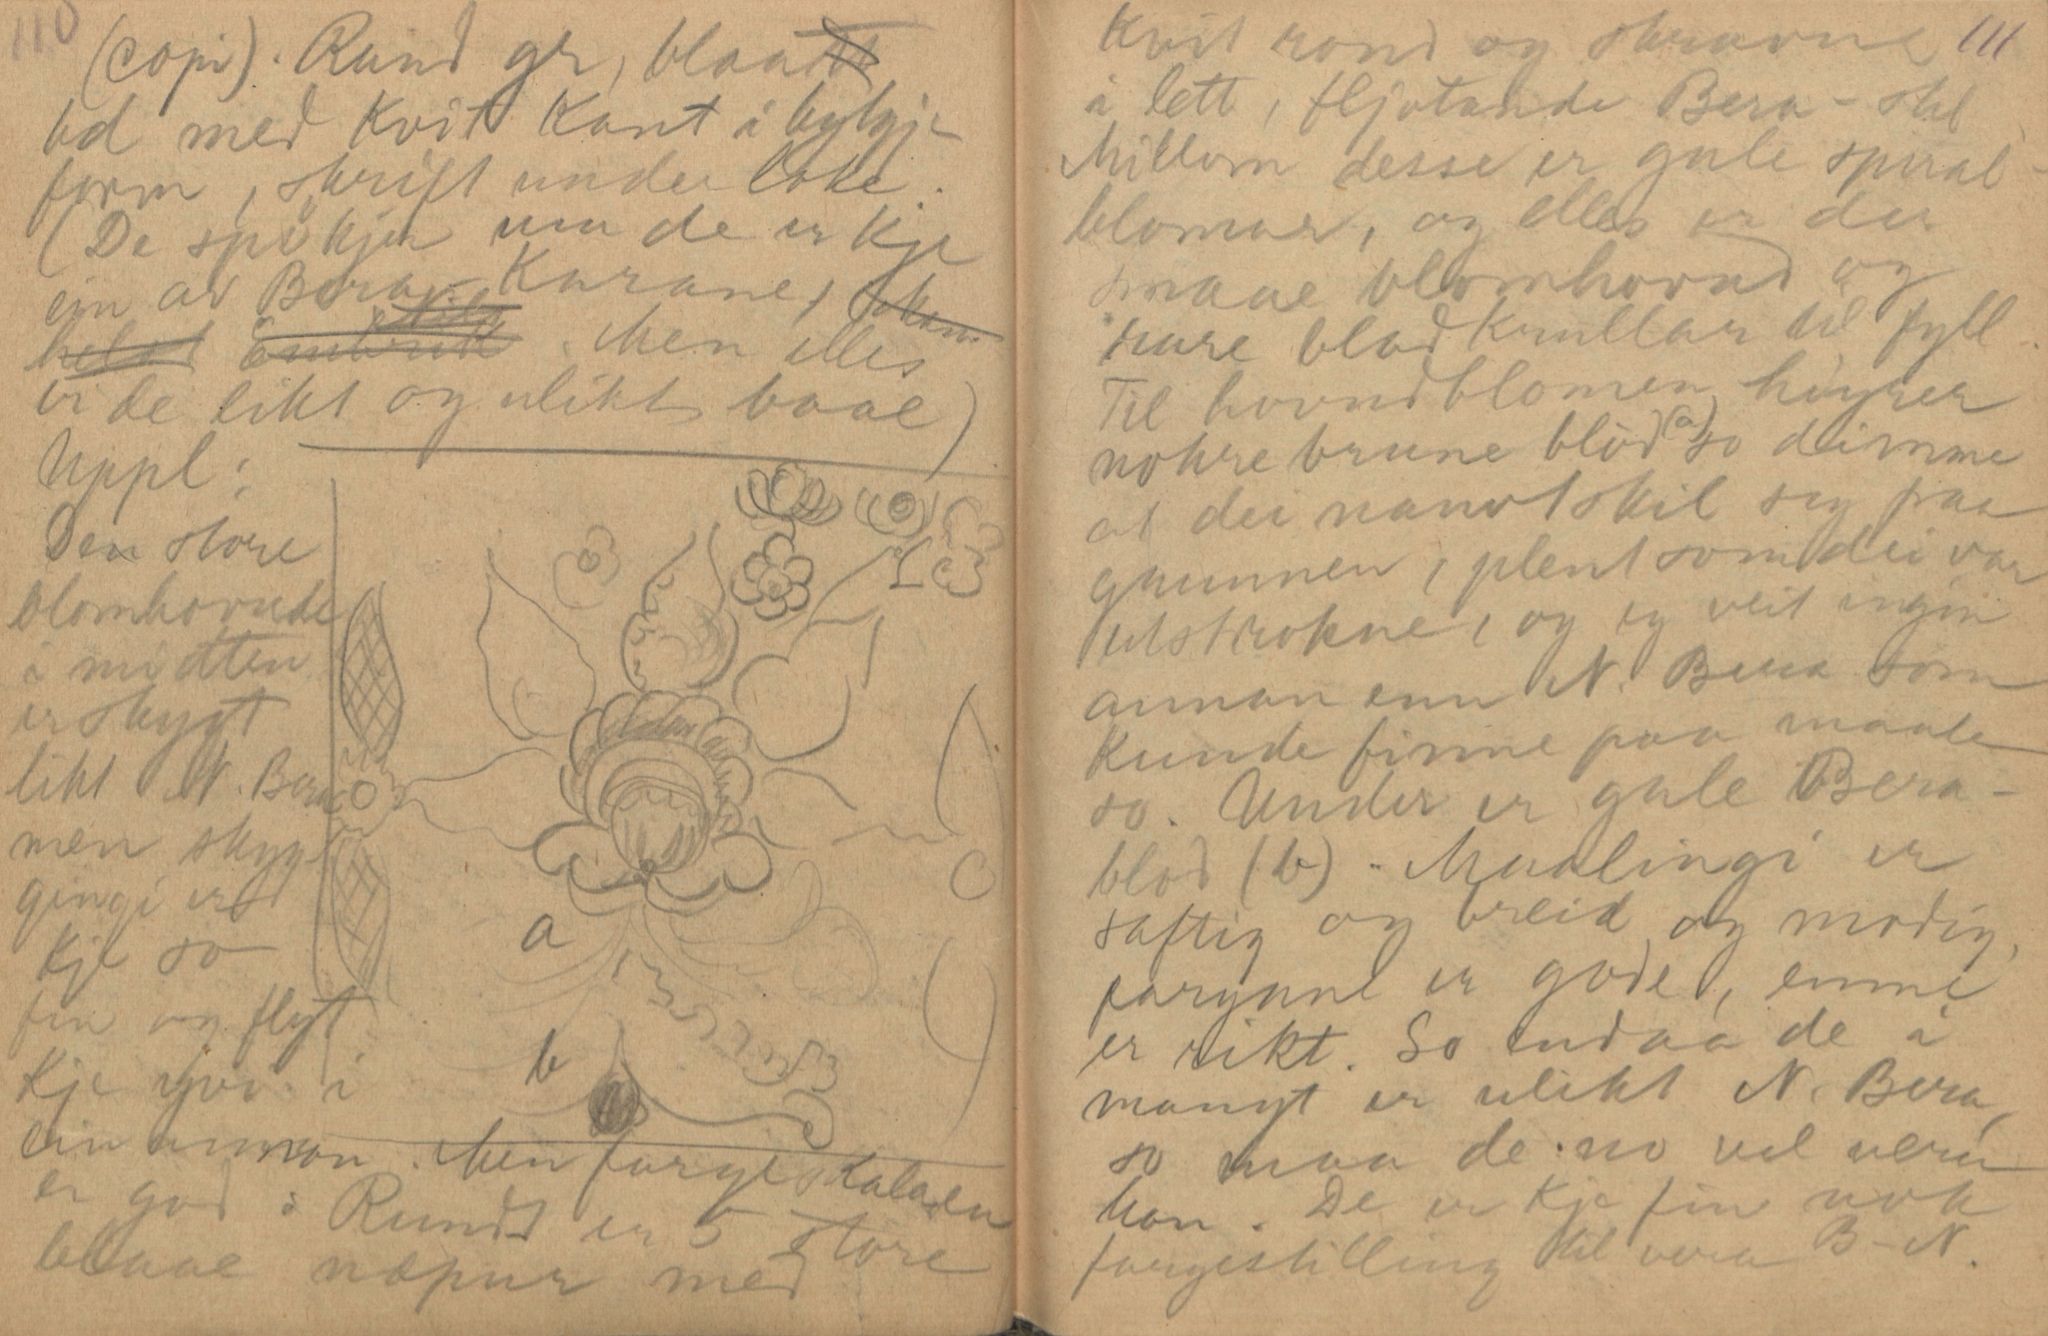 110
(copi). Rund gr, blaatt
bd med kvit kant i bylgje
form, skrift under loke.
(De spökjer um de er kje
ein av Bera-Karane,
helst Nils. Men elles
er de likt og ulikt baae)
Uppl:
Den store
blomhovude
i midten
er skygt
likt N. Bera
men skyg
gingi er
kje so
fin og flyt
kje yver i
ein annan. Men fargeskalaen
er god: Rundt er 5 store
blaae næpur med
a
b
111
kvit rond og skravne
i lett, fljotande Bera-stil
Millom desse er gule spiral-
blomar, og elles er der
smaae blomhovud og
rare bladkrullar til fyll.
Til hovudblomen höyrer
nokre brune blöd (a) so dimme
at dei nauvt skil seg paa
grunnen, plent som dei var
utstrokne, og eg veit ingin
annan enn N. Bera som
kunde finne paa maale
so. Under er gule Bera-
blod (b). Maalingi er
saftig og breid og modig,
fargane er gode, emne
er rikt. So endaa de i
mangt er ulikt N. Bera,
so maa de no vel vera
han. De er kje fin nok
fargestilling til vera B-N.